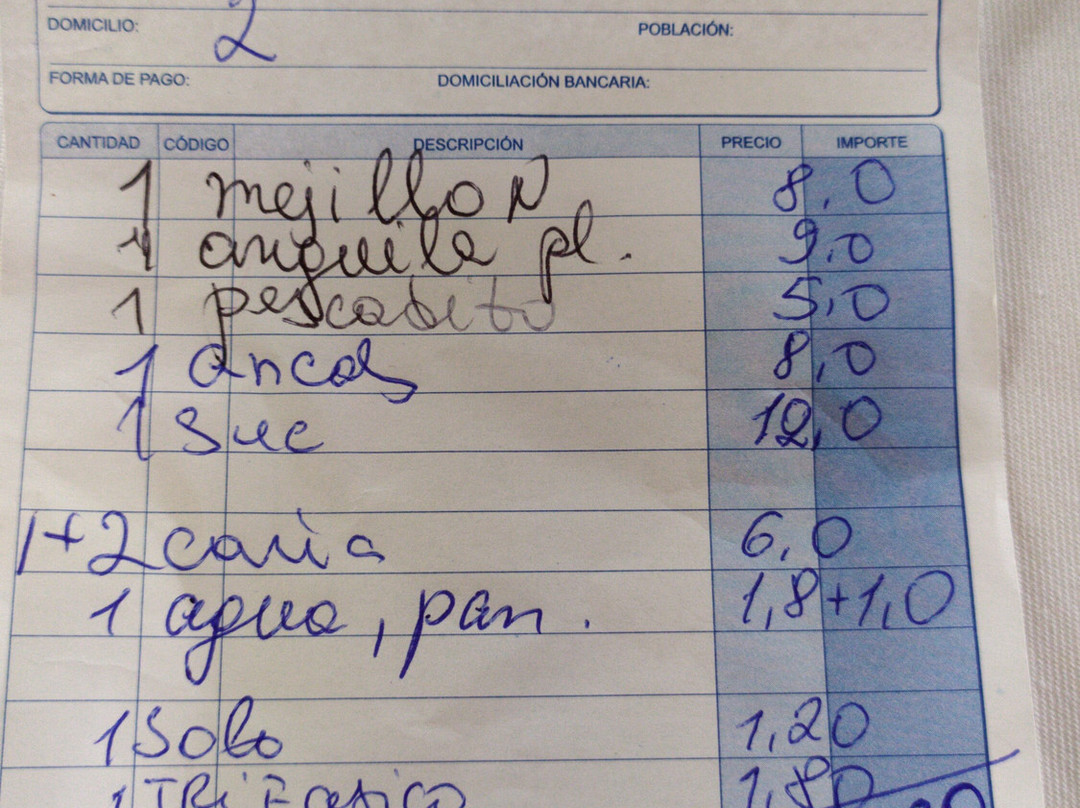 DOMICILIO: 2 POBLACIÓN:
FORMA DE PAGO: DOMICILIACIÓN BANCARIA:
CANTIDAD CÓDIGO DESCRIPCIÓN PRECIO IMPORTE
1 mejilloN 8,0
1 anguila pl. 9,0
1 pescadito 5,0
1 ancas 8,0
1 suc 12,0
1+2 caña 6,0
1 agua, pan. 1,8+1,0
1 Solo 1,20
1 1,80